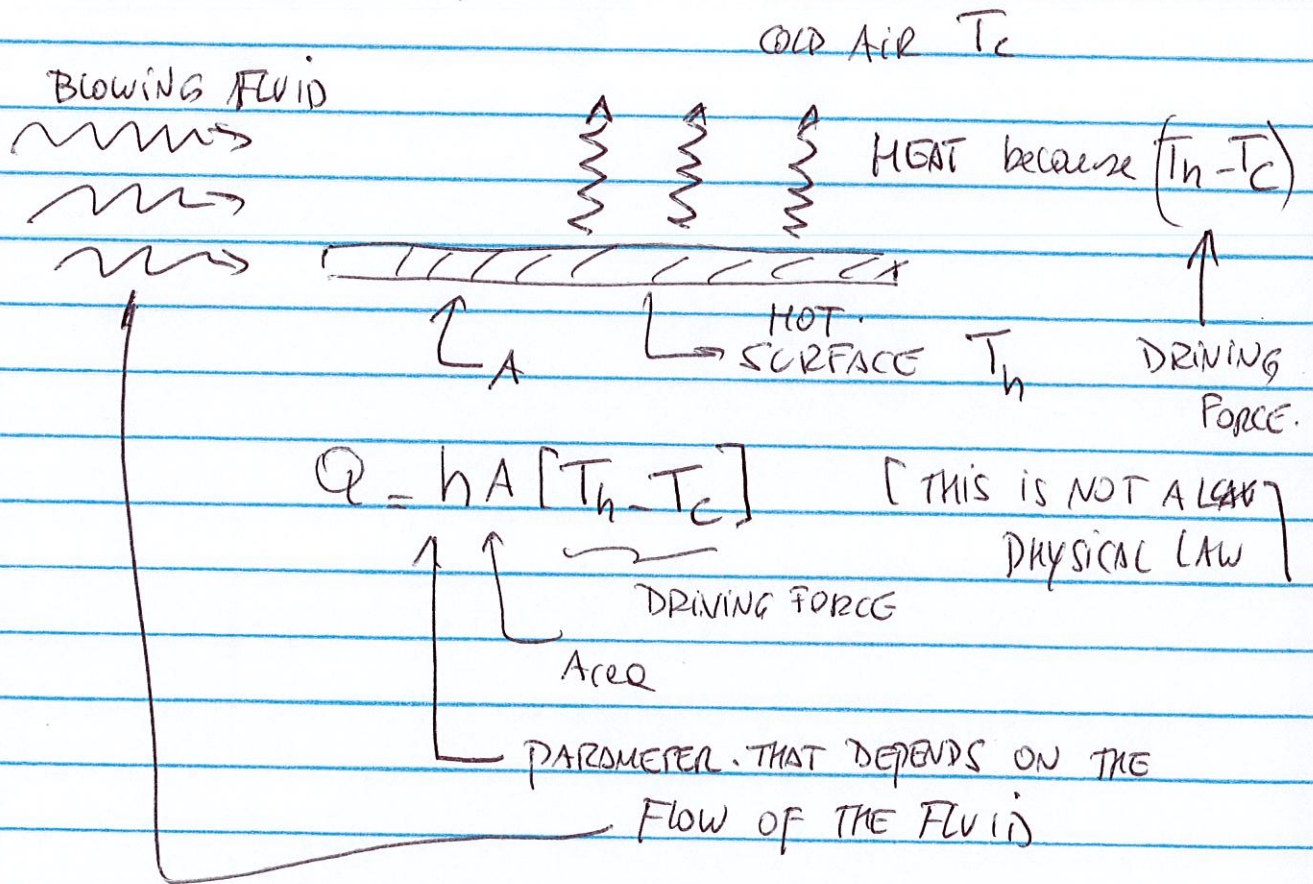 COLD AIR Tc
BLOWING FLUID
HEAT because (Th-Tc)
A
HOT.
SURFACE Th
DRIVING
FORCE.
Q = hA [Th-Tc]
[THIS IS NOT A
PHYSICAL LAW]
DRIVING FORCE
Area
PARAMETER. THAT DEPENDS ON THE
FLOW OF THE FLUID